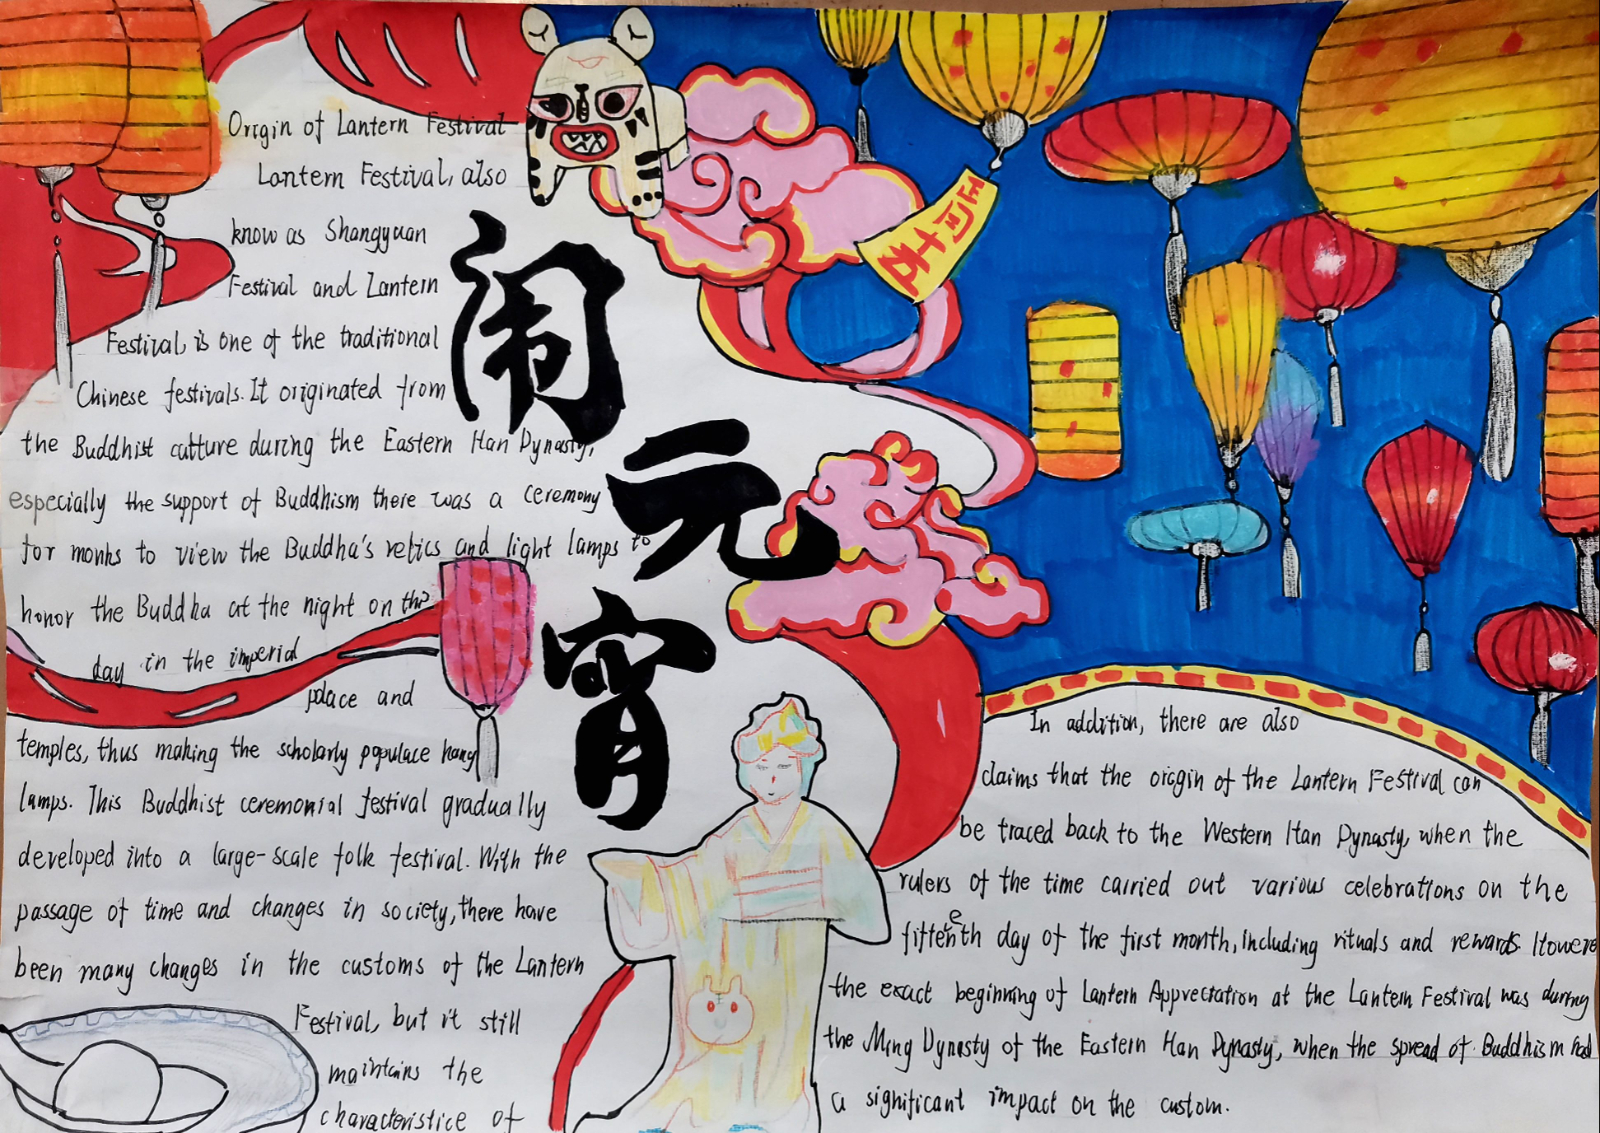 Origin of Lantern Festival
Lantern Festival, also
know as Shangyuan
Festival and Lantern
Festival, is one of the traditional
Chinese festivals. It originated from
the Buddhist culture during the Eastern Han Dynasty,
especially the support of Buddhism there was a ceremony
for monks to view the Buddha's relics and light lamps to
honor the Buddha at the night on this
day in the imperial
palace and
temples, thus making the scholarly populace hang
lamps. This Buddhist ceremonial festival gradually
developed into a large-scale folk festival. With the
passage of time and changes in society, there have
been many changes in the customs of the Lantern
Festival, but it still
maintains the
characteristice of
闹
元
宵
正月
十五
In addition, there are also
claims that the origin of the Lantern Festival can
be traced back to the Western Han Dynasty, when the
rulers of the time carried out various celebrations on the
fifteenth day of the first month, including rituals and rewards. Howere
the exact beginning of Lantern Apprectation at the Lantern Festival was during
the Ming Dynasty of the Eastern Han Dynasty, when the spread of Buddhism had
a significant impact on the custom.